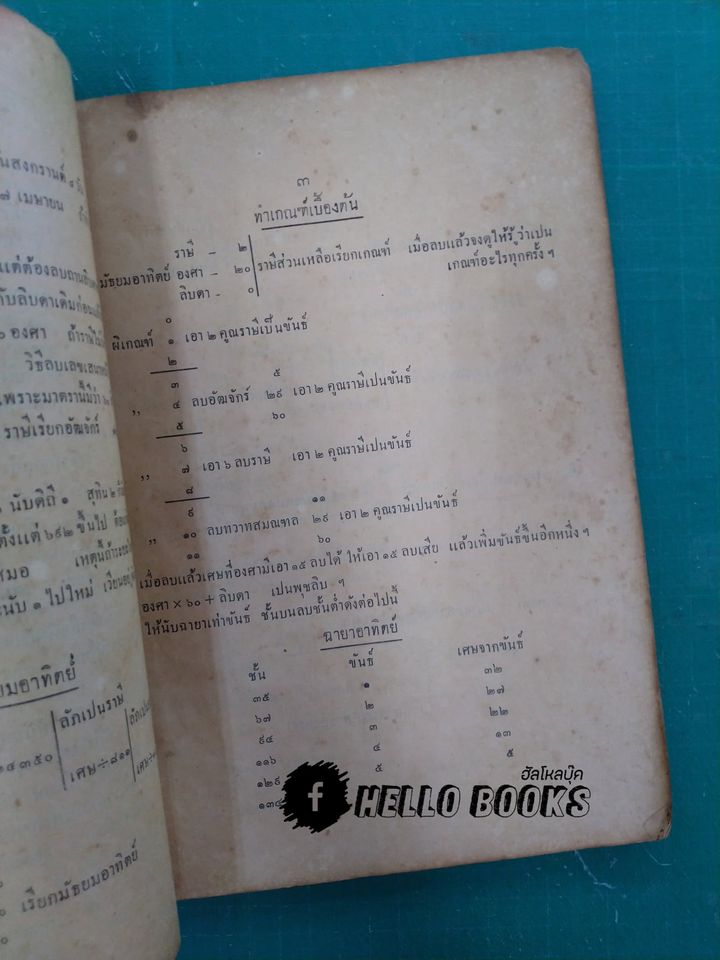 ๓
ทำเกณฑ์เบื้องต้น
ราษี – ๒
มัธยมอาทิตย์ องศา – ๒๐ ราษีส่วนเหลือเรียกเกณฑ์ เมื่อลบแล้วจงดูให้รู้ว่าเปน
ลิบดา – ๐ เกณฑ์อะไรทุกครั้ง ฯ
๐
ผิเกณฑ์ ๑ เอา ๒ คูณราษีเป็นขันธ์
๒
๓ ๕
,, ๔ ลบอัฒจักร์ ๒๙ เอา ๒ คูณราษีเปนขันธ์
๕ ๖๐
๖
,, ๗ เอา ๖ ลบราษี เอา ๒ คูณราษีเปนขันธ์
๘
๙ ๑๑
,, ๑๐ ลบทวาทสมณฑล ๒๙ เอา ๒ คูณราษีเปนขันธ์
๑๑ ๖๐
เมื่อลบแล้วเศษที่องศามีเอา ๑๕ ลบได้ ให้เอา ๑๕ ลบเสีย แล้วเพิ่มขันธ์ขึ้นอีกหนึ่ง ฯ
องศา × ๖๐ + ลิบดา เปนพุชลิบ ฯ
ให้นับฉายาเท่าขันธ์ ชั้นบนลบชั้นต่ำดังต่อไปนี้
ฉายาอาทิตย์
ชั้น ขันธ์ เศษจากขันธ์
๓๕ ๑ ๓๒
๖๗ ๒ ๒๗
๙๔ ๓ ๒๒
๑๑๖ ๔ ๑๓
๑๒๙ ๕ ๕
๑๓๔
นสงกรานต์
๗ เมษายน
แต่ต้องลบ
กับลิบดาเดิมก่อน
องศา
วิธีลบเลข
เพราะมาตรานี้มีว่า
ราษีเรียกอัฒจักร์
นับดิถี ๑ สุทิน ๒
ตั้งแต่ ๖๙๒ ขึ้นไป
สมอ
นับ ๑ ไปใหม่
ยมอาทิตย์
๑๔๓๕๐ ลัภเปนราษี
เศษ÷๘๑๑
๐ เรียกมัธยมอาทิตย์
๐
ฮัลโหลบุ๊ค
f HELLO BOOKS